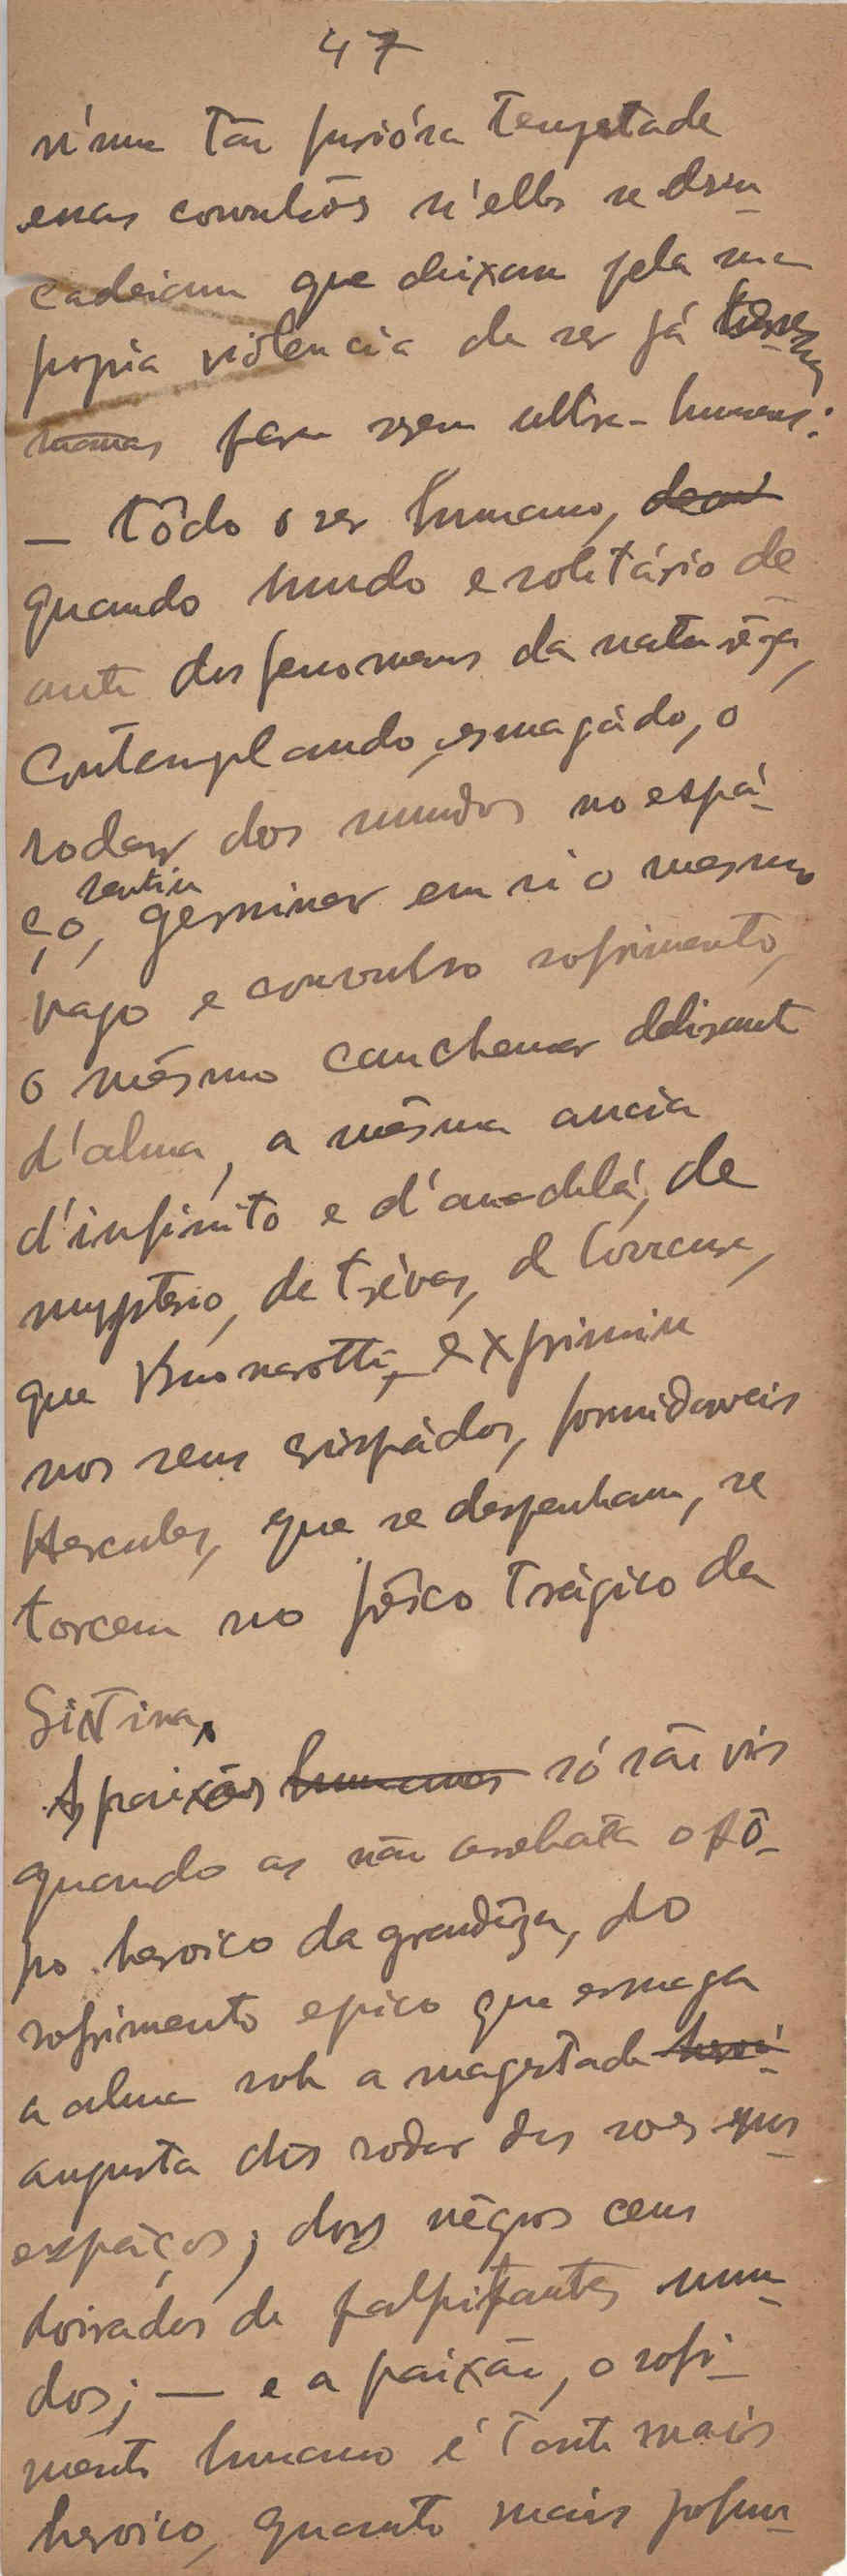 47
n'uma tão furiósa tempestade
essas convulsões n'elles se desen-
cadeiam que deixam pela sua
propia violencia de ser já
para serem ultra-humanas:
— tôdo o ser humano,
quando mudo e solitário de-
ante dos fenomenos da naturêza,
Contemplando, esmagádo, o
rodar dos mundos no espá-
ço, sentiu germinar em si o mesmo
vago e convulso sofrimento,
o mêsmo cauchemar delirante
d'alma, a mêsma ancia
d'infinito e d'àmdelá, de
mysterio, de trévas, de
que Buonarotti, exprimiu
nos seus crispádos, formidaveis
Hercules, que se despenham, se
torcem no fêsco trágico da
Sixtina.
As paixões humanas só são vis
quando as não arrebata o fô-
go heroico da grandêza, do
sofrimento epico que esmaga
a alma sob a magestade herói-
augusta dos rodar dos soes nos
espáços; dos négros ceus
doirados de palpitantes mun-
dos; — e a paixão, o sofri-
mento humano é tanto mais
heroico, quanto mais profun-